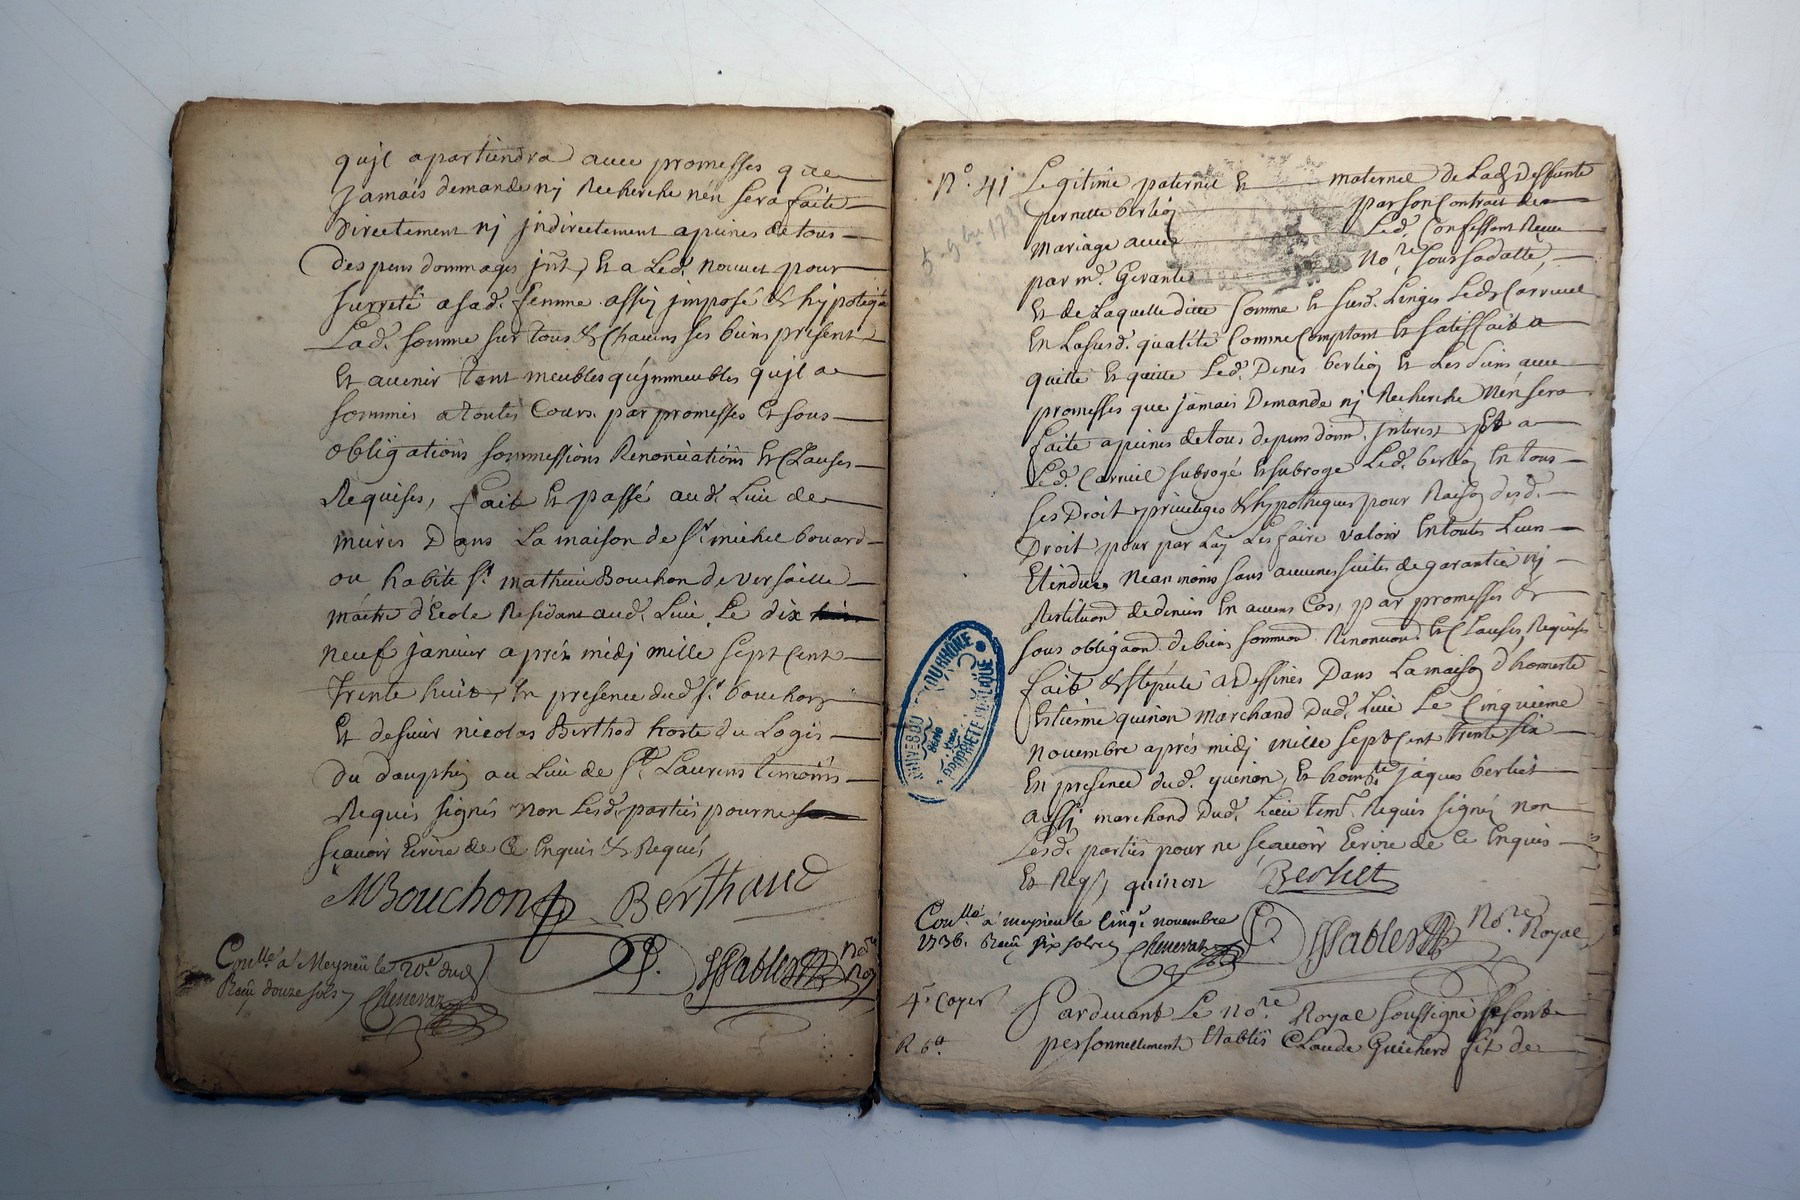 qu'jl apartiendra avec promesses que
jamais demande nj Recherche n'en sera faite
Directement nj jndirectement a peines de tous
despens dommages jnt, Et a Led. nouvet pour
surreté a sad. femme assis jmposé & hypotequé
Lad. somme sur tous & Chacuns ses biens presents
Et avenir tant meubles qu'jmmeubles qu'jl a
sommis a toutes Cours par promesses Et sous
obligations sommissions Renonciations Et Clauses
Requises, fait Et passé aud. Lieu de
mures Dans La maison de sr. michel bouard
ou habite sr. mathieu Bouchon de versaille
maitre d'Ecole Residant aud. Lieu, Le dix
neuf janvier aprés midj mille sept Cent
trente huit, En presence dud. sr. bouchon
Et de sieur nicolas Berthod hoste du Logis
du dauphin au Lieu de st. Laurens temoins
Requis signés non Lesd. parties pour ne
sçavoir Ecrire de Ce Enquis & Requis
MBouchon Berthaud
Conllé à Meyzieu le 20e. dud.
Receu douze sols Chenevaz
Sables No.re Roy
N.o 41 Legitime paternel Et maternel de Lad. Deffunte
pernette berlioz par son Contrait de
mariage avec Led. Confessant Receu
par me. Gerante No.re soussadatte,
5 9bre 1736
Et de Laquelle ditte somme Et susd. Linges Led. Carruel
En La susd. qualité Comme Comptant Et satisfait a
quitté Et quitte Led. Denis berlioz Et Les siens avec
promesses que jamais Demande nj Recherche N'en sera
faite a peines de tous depens dom. jnterest, Et a
Led. Carruel subrogé Et subroge Led. berlioz En tous
ses Droit privileges & hypotheques pour Raison desd.
Droit pour par Luy Les faire valoir En toutes Leurs
Etendues Neanmoins sans aucunes suites de garantie nj
Restitution de deniers En aucuns Cas, par promesses &
sous obligaon. de biens sommion. Renoncion. Et Clauses Requises
fait & stipulé a Dessines Dans La maison d'honneste
Estienne quinon marchand Dud. Lieu Le Cinquieme
novembre aprés midj mille sept Cent trente six
En presence dud. quinon, Et honnte. jaques berliet
aussj marchand Dud. Lieu temt. Requis signés non
Lesd. parties pour ne sçavoir Ecrire de Ce Enquis
Et Reqs, quinon Berliet
Conllé à meyzieu le cinqe. novembre
1736. Receu six sols Chenevaz
Sables No.re Royal
4e. Cayer Pardevant Le No.re Royal soussigné se sont
R 6s. personnellement Etablis Claude Guicherd fils de
DU RHÔNE